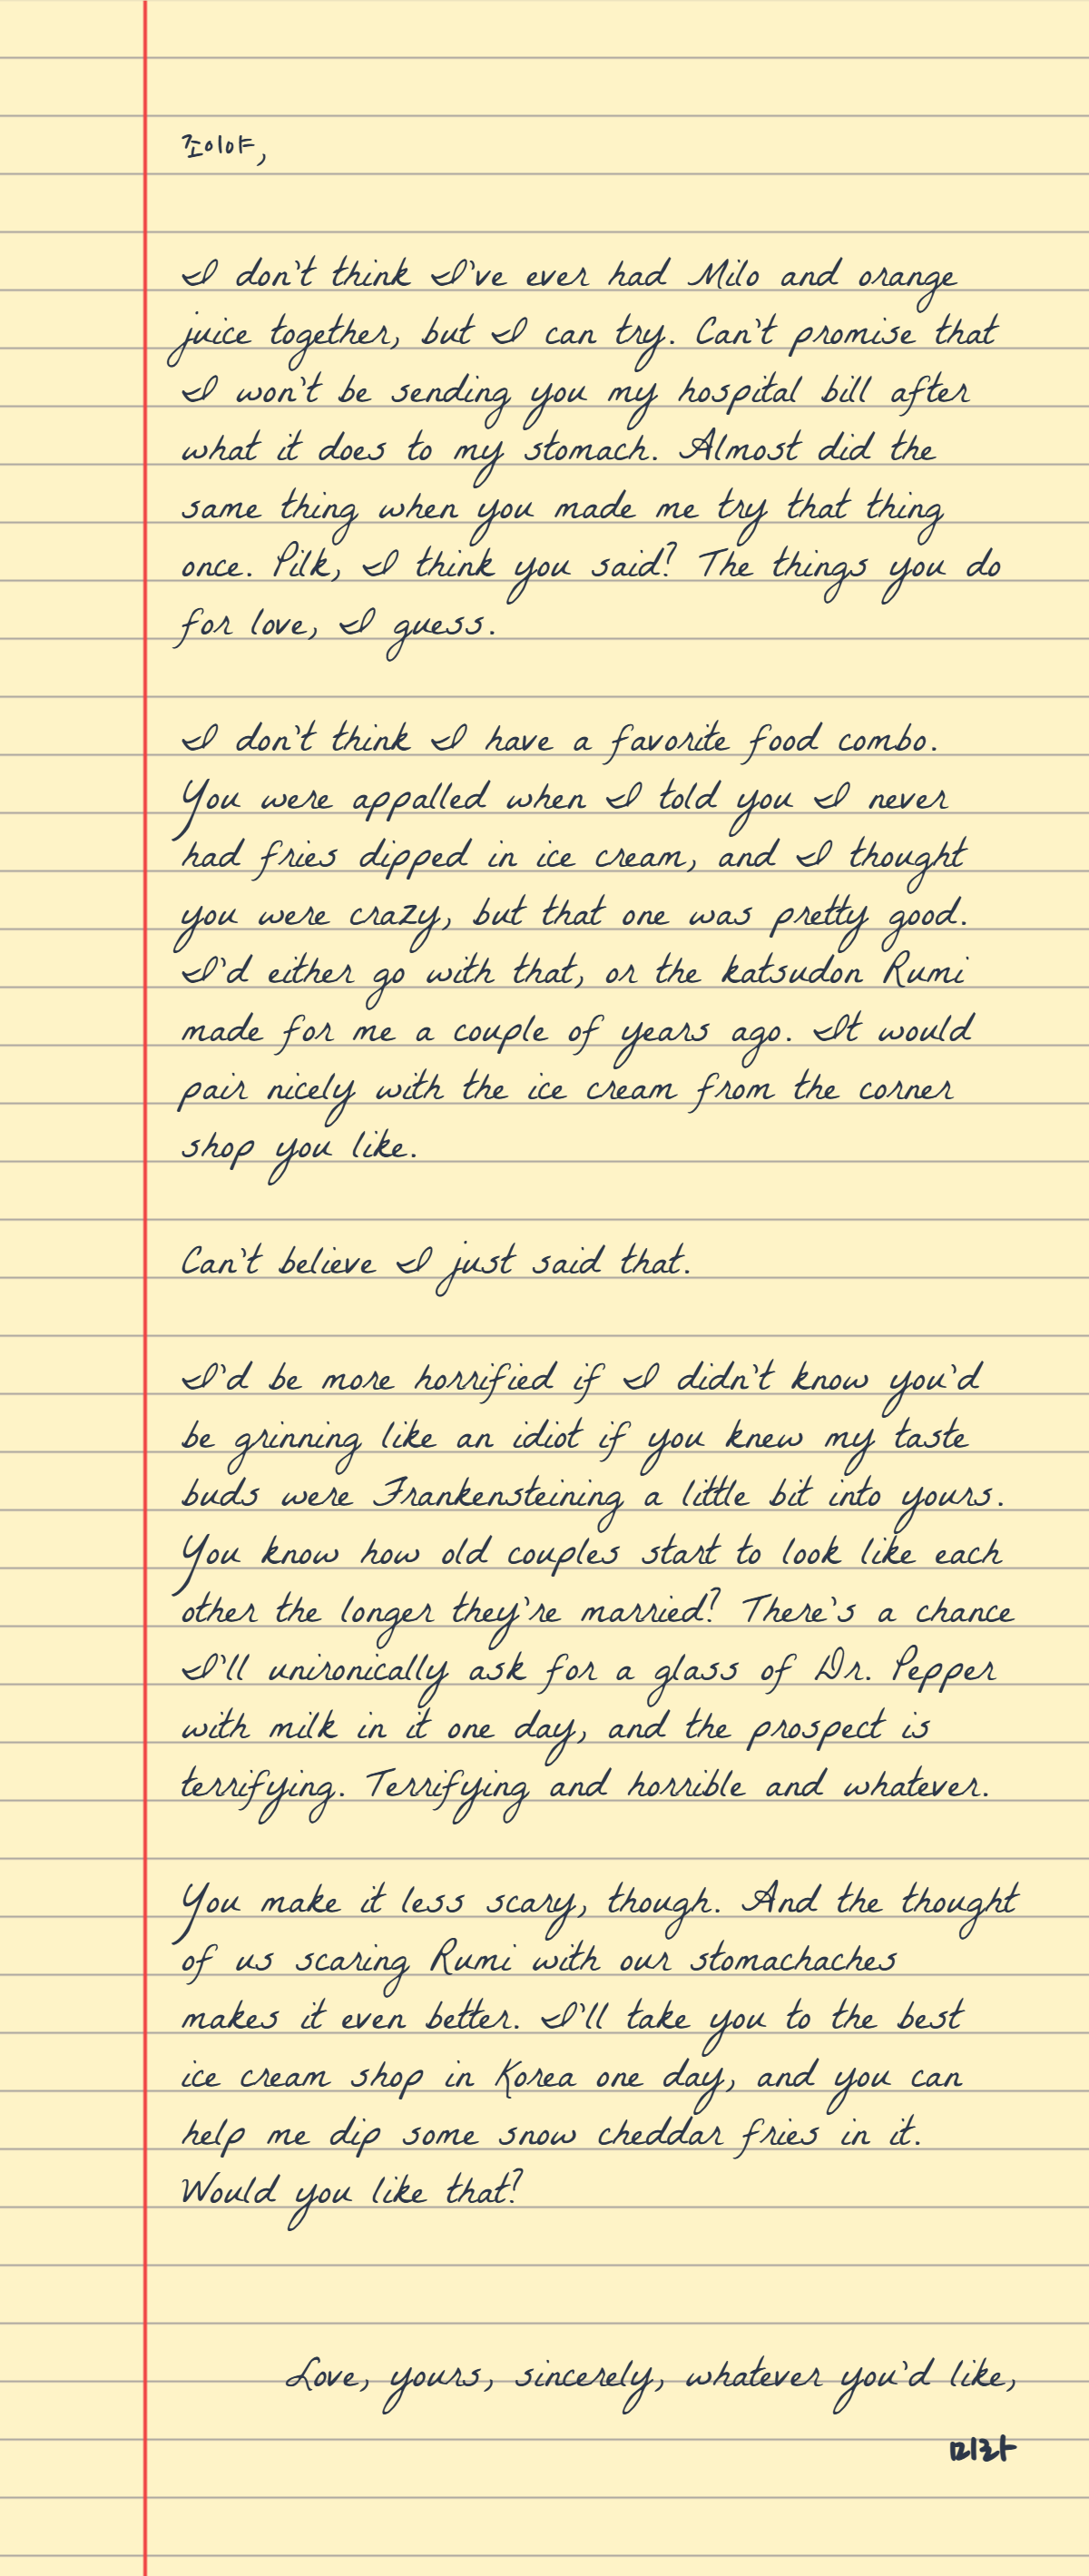 조이야,
I don't think I've ever had Milo and orange
juice together, but I can try. Can't promise that
I won't be sending you my hospital bill after
what it does to my stomach. Almost did the
same thing when you made me try that thing
once. Pilk, I think you said? The things you do
for love, I guess.
I don't think I have a favorite food combo.
You were appalled when I told you I never
had fries dipped in ice cream, and I thought
you were crazy, but that one was pretty good.
I'd either go with that, or the katsudon Rumi
made for me a couple of years ago. It would
pair nicely with the ice cream from the corner
shop you like.
Can't believe I just said that.
I'd be more horrified if I didn't know you'd
be grinning like an idiot if you knew my taste
buds were Frankensteining a little bit into yours.
You know how old couples start to look like each
other the longer they're married? There's a chance
I'll unironically ask for a glass of Dr. Pepper
with milk in it one day, and the prospect is
terrifying. Terrifying and horrible and whatever.
You make it less scary, though. And the thought
of us scaring Rumi with our stomachaches
makes it even better. I'll take you to the best
ice cream shop in Korea one day, and you can
help me dip some snow cheddar fries in it.
Would you like that?
Love, yours, sincerely, whatever you'd like,
미라